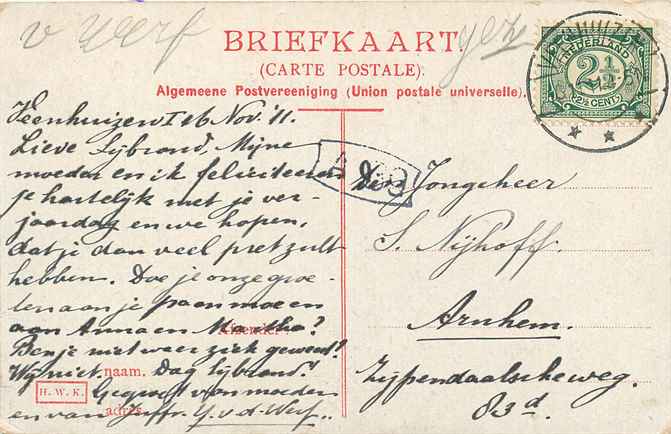 v Werf
gez
BRIEFKAART
(CARTE POSTALE).
Algemeene Postvereeniging (Union postale universelle).
NEDERLAND
2½
2½ CENT
Veenhuizen I 16 Nov. '11.
Lieve Sijbrand, Mijne
moeder en ik feliciteeren
je hartelijk met je ver-
jaardag en we hopen,
dat je dan veel pret zult
hebben. Doe je onze groe-
ten aan je pa en moe en
aan Anna en Martha?
Afzender:
Ben je niet weer ziek geweest?
Wij niet. Dag Sijbrand!
naam.
H. W. K.
Gegroet van moeder
en van Juffr. G. v. d. Werf.
adres
Den Jongeheer
S. Nijhoff.
Arnhem.
Zijpendaalscheweg.
83d.